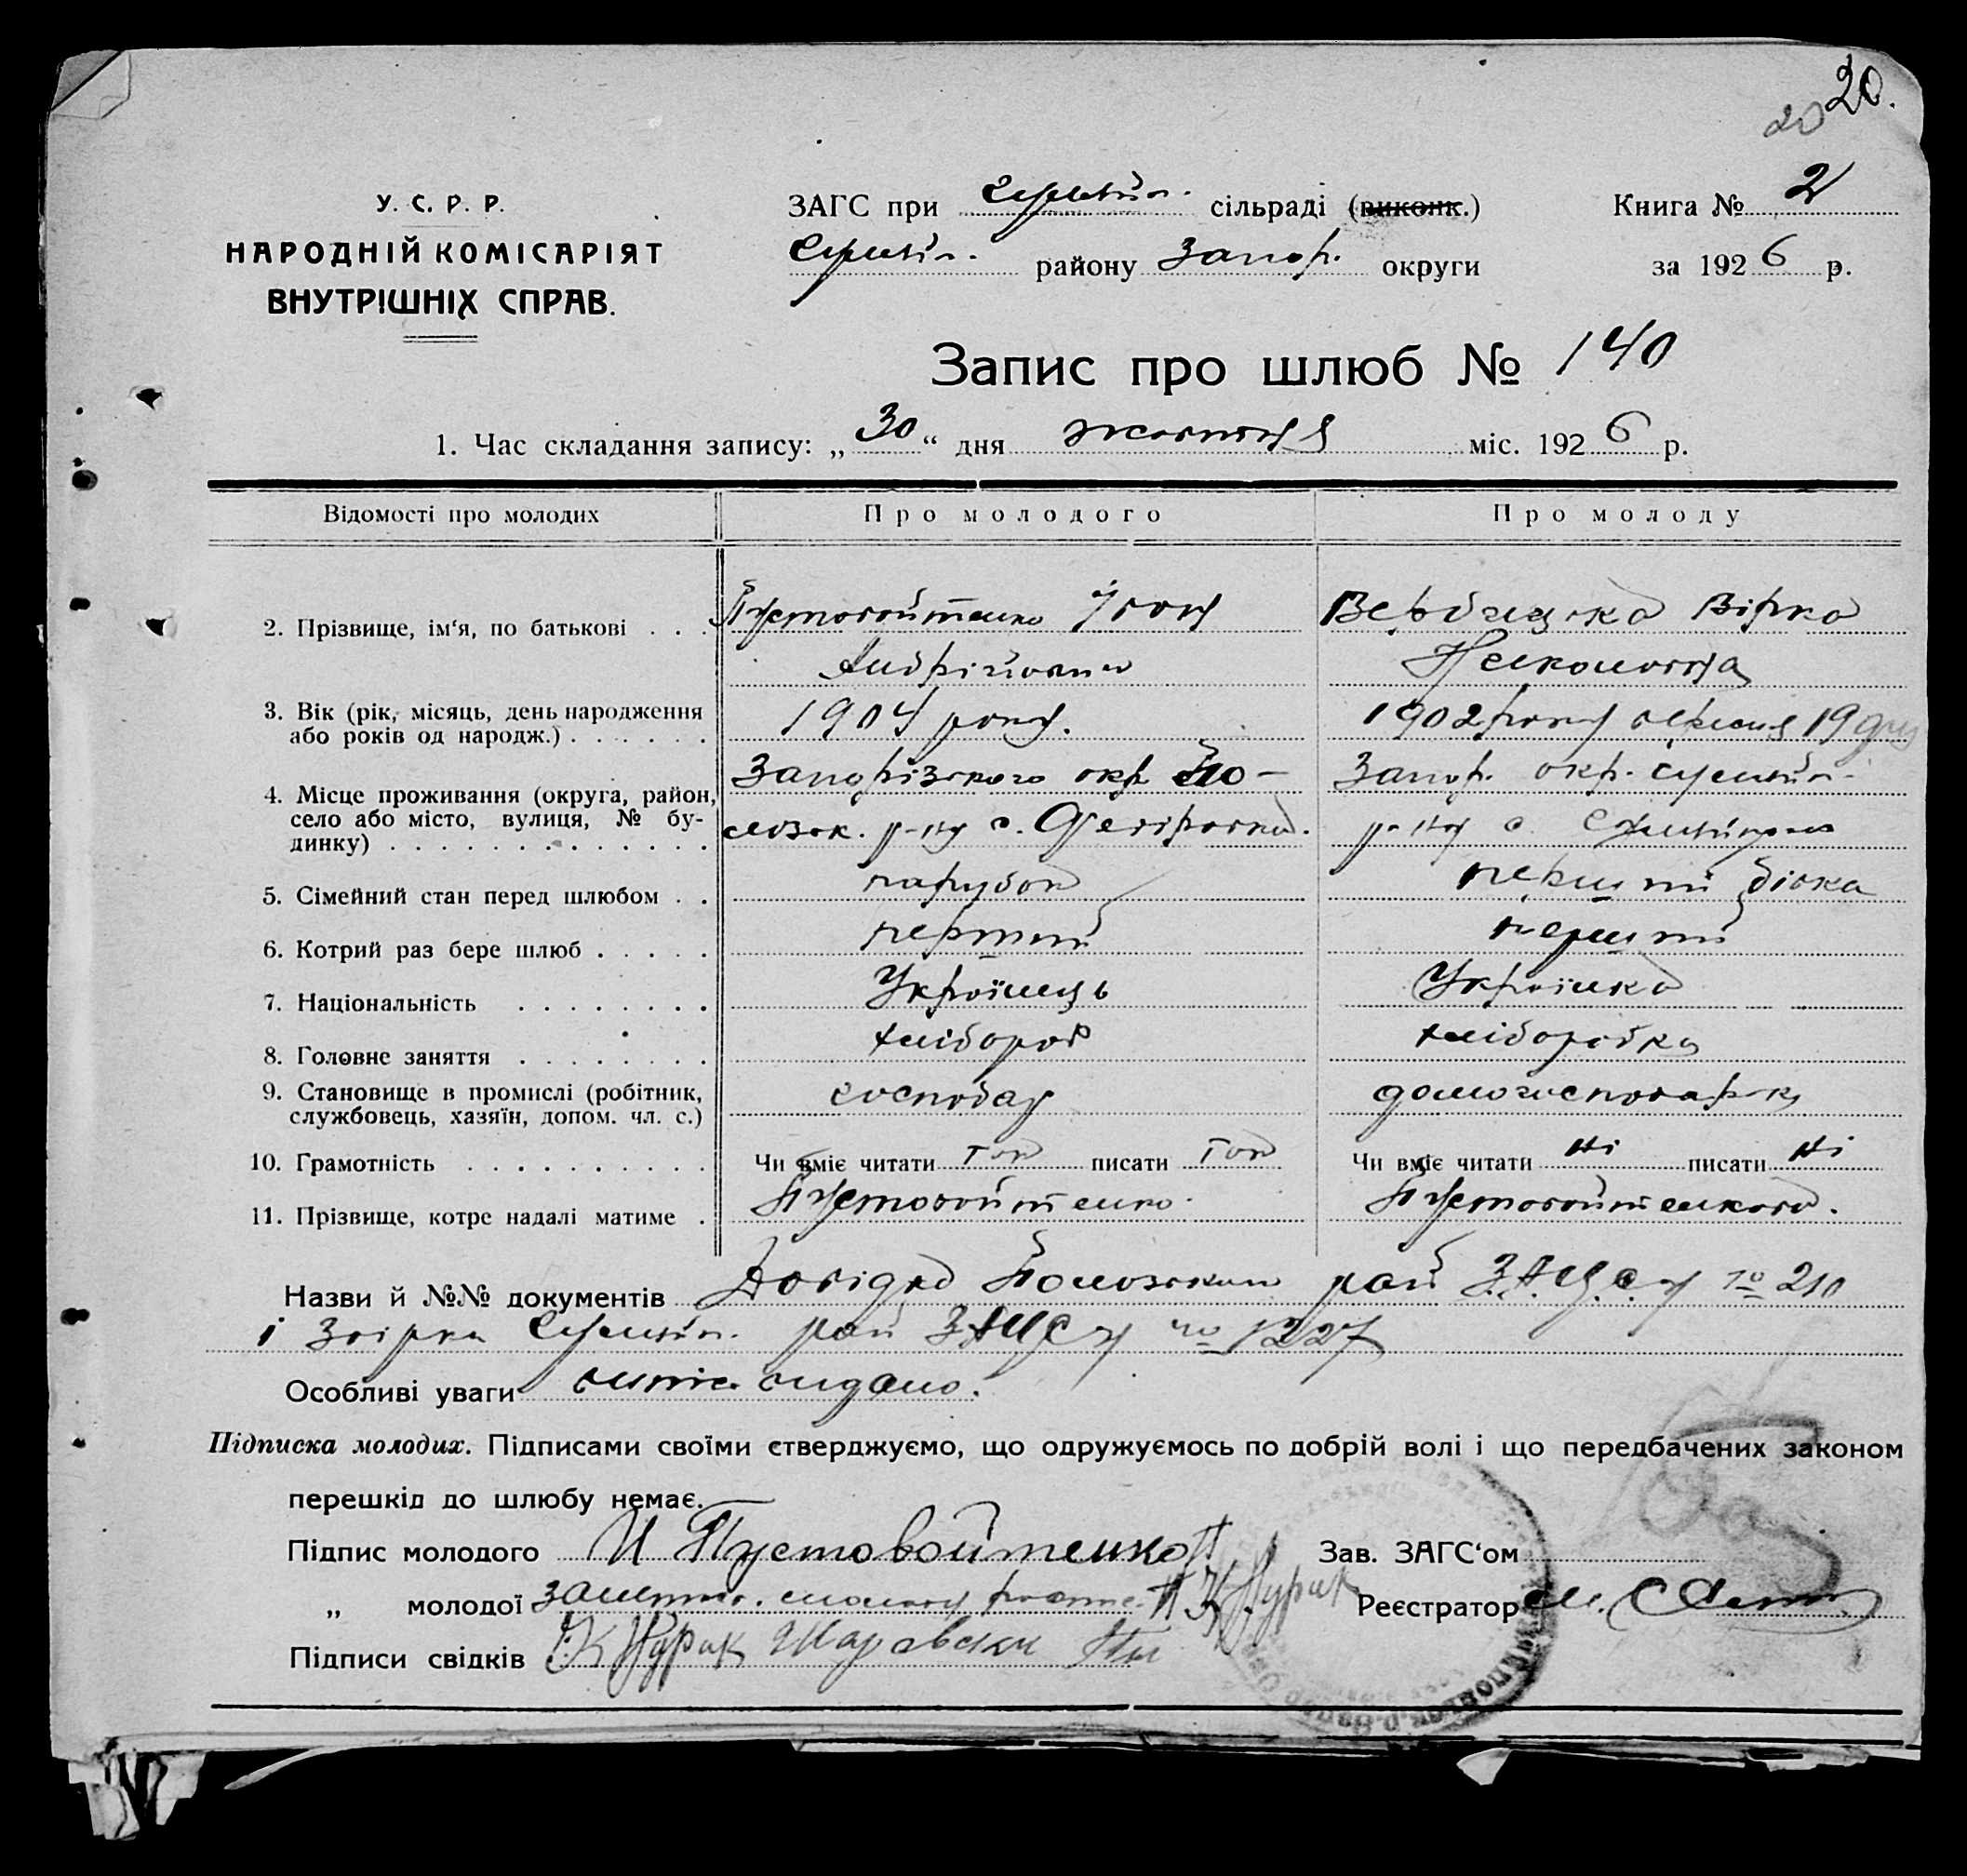 20 20.
У. С. Р. Р.
НАРОДНІЙ КОМІСАРІЯТ
ВНУТРІШНІХ СПРАВ.
ЗАГС при сільраді (виконк.)
району Запор. округи
Книга № 2
за 1926 р.
Запис про шлюб № 140
1. Час складання запису: „30“ дня жовтня міс. 1926 р.
Відомості про молодих Про молодого Про молоду
2. Прізвище, ім‘я, по батькові . . . Пустовойтенко Іван Вербицька Вірка
Андрійович
3. Вік (рік, місяць, день народження 1904 року. 1902 року 19 дня
або років од народж.) . . . . . .
4. Місце проживання (округа, район, Запорізького окр. По- Запор. окр.
село або місто, вулиця, № бу- р-ну с. р-ну с.
динку) . . . . . . . . . . . . .
5. Сімейний стан перед шлюбом . . парубок дівка
6. Котрий раз бере шлюб . . . . . перший перший
7. Національність . . . . . . . . Українець Українка
8. Головне заняття . . . . . . . . хлібороб хліборобка
9. Становище в промислі (робітник, господар домогосподарка
службовець, хазяїн, допом. чл. с.)
10. Грамотність . . . . . . . . . . Чи вміє читати так писати так Чи вміє читати ні писати ні
11. Прізвище, котре надалі матиме . Пустовойтенко. Пустовойтенкова.
Назви й №№ документів Довідка рай ЗАЦСу № 210
і рай ЗАЦСу № 1227
Особливі уваги видано.
Підписка молодих. Підписами своїми стверджуємо, що одружуємось по добрій волі і що передбачених законом
перешкід до шлюбу немає.
Підпис молодого И Пустовойтенко Зав. ЗАГС‘ом
„ молодої Реєстратор
Підписи свідків